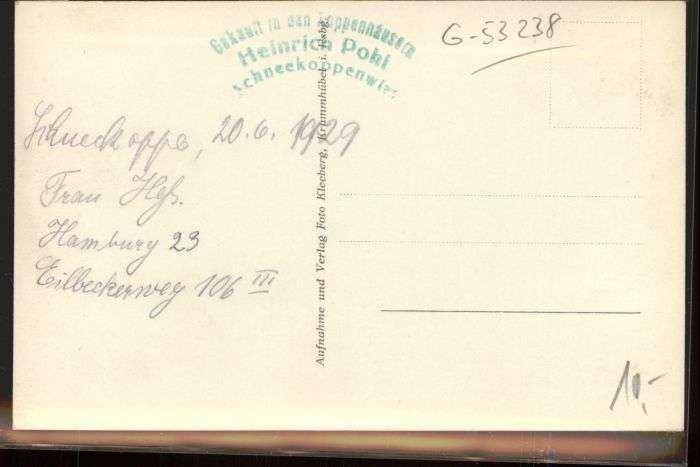 Gekauft in den Koppenhäusern
Heinrich Pohl
Schneekoppenwirt
G-53238
Schneekoppe, 20.6. 1929
Frau Heß.
Hamburg 23
Eilbeckerweg 106 III
Aufnahme und Verlag Foto Kleeberg, Krummhübel i. Rsbg.
10,-